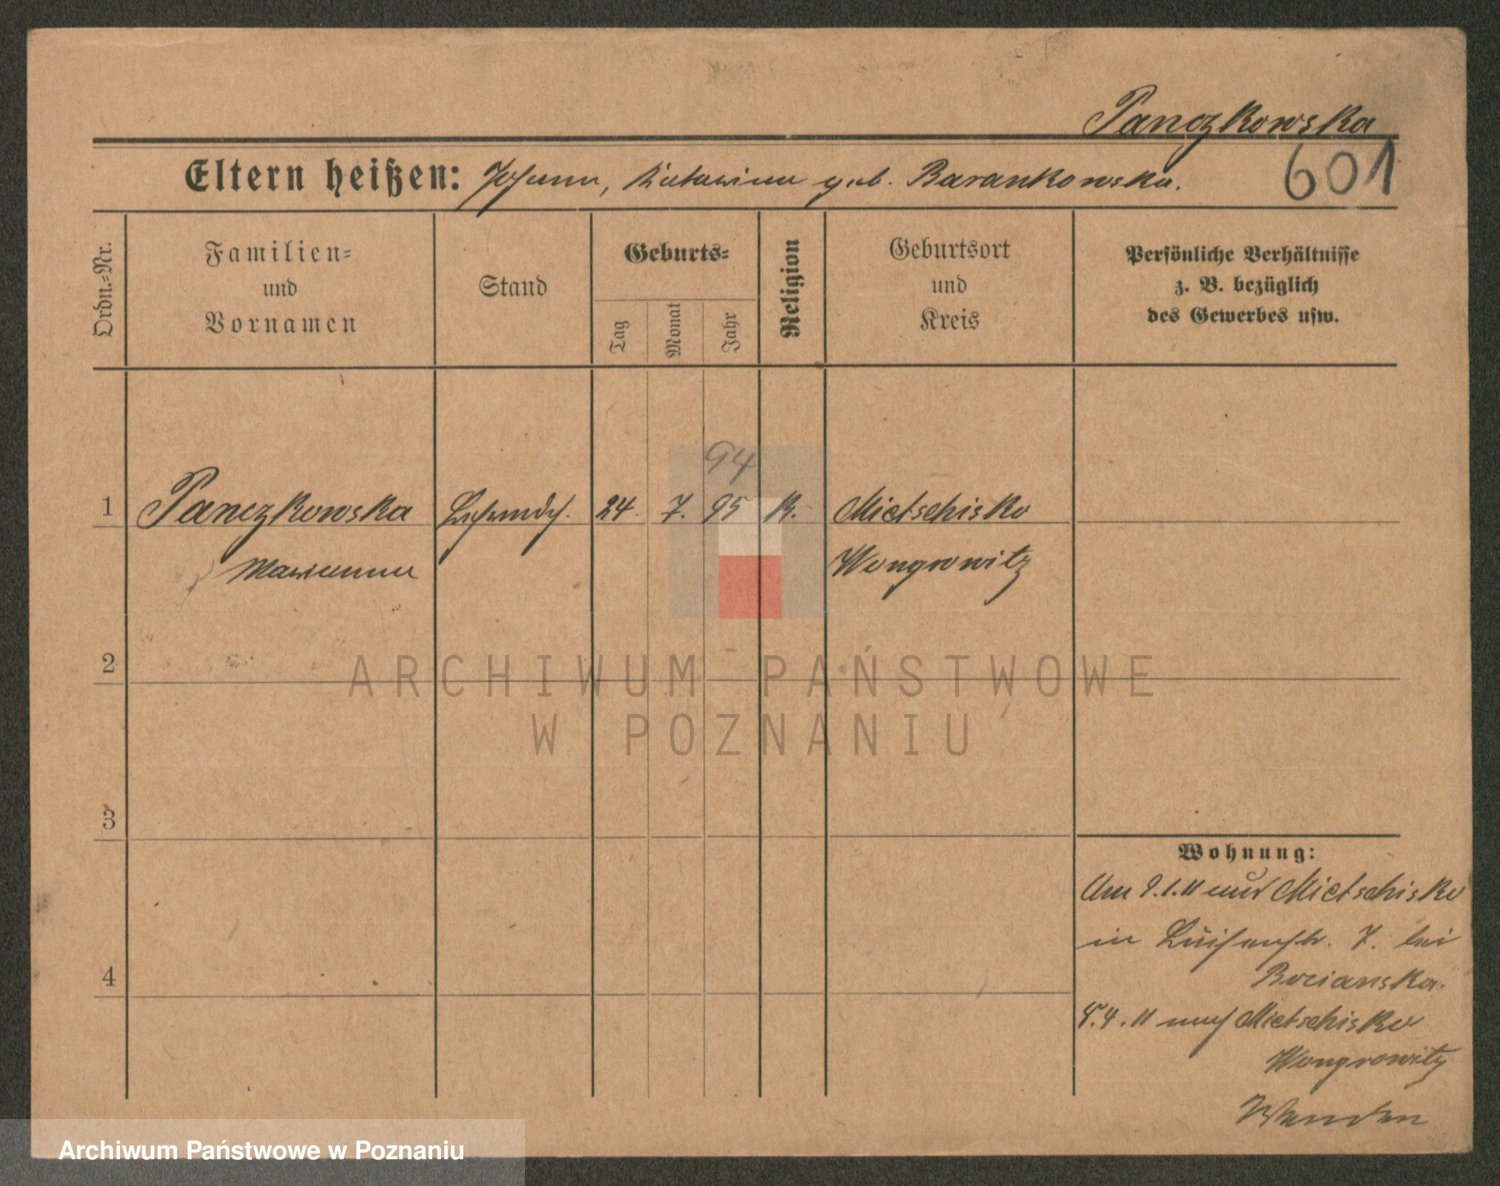 Panczkowska
Eltern heißen: Johann, Katarina geb. Barankowska.
601
Ordn.-Nr.
Familien-
und
Vornamen
Stand
Geburts-
Tag
Monat
Jahr
Religion
Geburtsort
und
Kreis
Persönliche Verhältnisse
z. B. bezüglich
des Gewerbes usw.
94
1 Panczkowska 24. 7. 95 K. Mietschisko
Marianna Wongrowitz
2
ARCHIWUM PAŃSTWOWE
W POZNANIU
3
Wohnung:
Am 9.1.11 aus Mietschisko
in Luisenstr. 7. bei
Bocianska.
4
5.4.11 nach Mietschisko
Wongrowitz
Archiwum Państwowe w Poznaniu